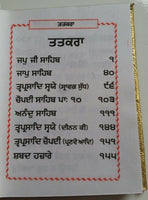 ਤਤਕਰਾ
ਤਤਕਰਾ
ਜਪੁ ਜੀ ਸਾਹਿਬ ੧
ਜਾਪੁ ਸਾਹਿਬ ੪੦
ਤ੍ਵਪ੍ਰਸਾਦਿ ਸ੍ਵਯੇ (ਸ੍ਰਾਵਗ ਸੁੱਧ) ੯੬
ਚੌਪਈ ਸਾਹਿਬ ਪਾ: ੧੦ ੧੦੩
ਅਨੰਦੁ ਸਾਹਿਬ ੧੧੯
ਤ੍ਵਪ੍ਰਸਾਦਿ ਸ੍ਵਯੇ (ਦੀਨਨ ਕੀ) ੧੪੪
ਤ੍ਵਪ੍ਰਸਾਦਿ ਚੌਪਈ (ਪ੍ਰਣਵੋ ਆਦਿ) ੧੫੧
ਸ਼ਬਦ ਹਜ਼ਾਰੇ ੧੫੫